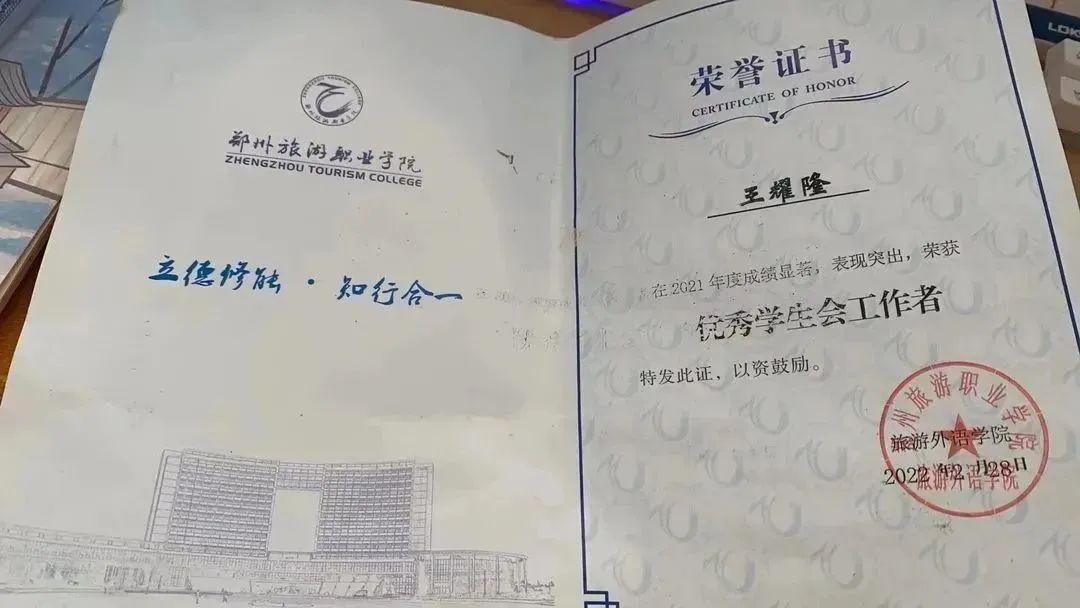 郑州旅游职业学院
ZHENGZHOU TOURISM COLLEGE
立德修能·知行合一
荣誉证书
CERTIFICATE OF HONOR
王耀隆
在2021年度成绩显著，表现突出，荣获
优秀学生会工作者
特发此证，以资鼓励。
旅游外语学院
2022年2月28日
州旅游职业学院
旅游外语学院